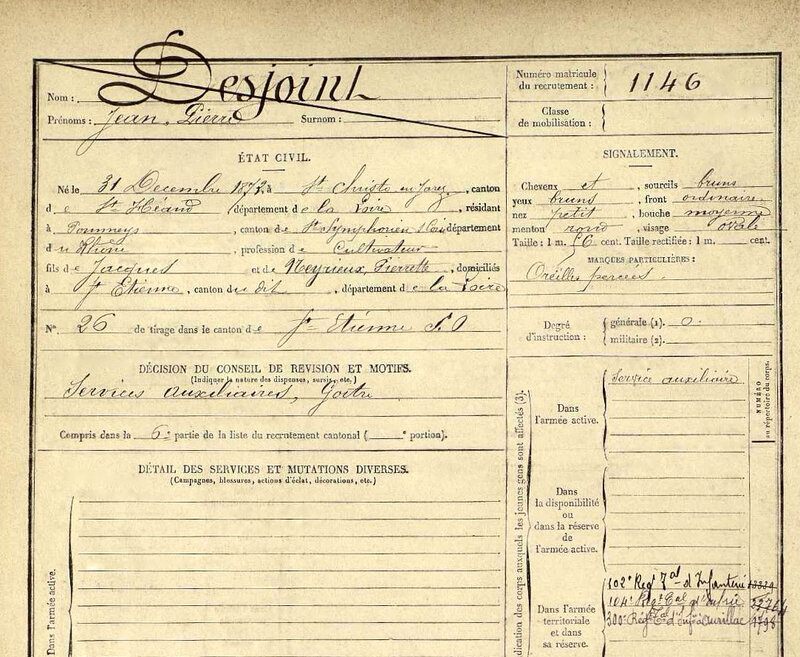 Nom : Desjoint
Prénoms : Jean Pierre Surnom :
Numéro matricule du recrutement : 1146
Classe de mobilisation :
ÉTAT CIVIL.
Né le 31 Decembre 1872, à St Christo en Jarez, canton
de St Héand, département de la Loire, résidant
à Pommeys, canton de St Symphorien, département
du Rhône, profession de Cultivateur
fils de Jacques et de Neyrieux Pierrette, domiciliés
à St Etienne, canton du dit, département de la Loire
N° 26 de tirage dans le canton de St Etienne S.O
DÉCISION DU CONSEIL DE REVISION ET MOTIFS.
(Indiquer la nature des dispenses, sursis, etc.)
Services auxiliaires, Goitre
Compris dans la 6e partie de la liste du recrutement cantonal ( e portion).
DÉTAIL DES SERVICES ET MUTATIONS DIVERSES.
(Campagnes, blessures, actions d'éclat, décorations, etc.)
Dans l'armée active.
SIGNALEMENT.
Cheveux et, sourcils bruns
yeux bruns, front ordinaire
nez petit, bouche moyenne
menton rond, visage ovale
Taille : 1 m. 56 cent. Taille rectifiée : 1 m. cent.
MARQUES PARTICULIÈRES :
Oreilles percées.
Degré d'instruction :
générale (1). 0.
militaire (2).
dication des corps auxquels les jeunes gens sont affectés (3).
NUMÉRO
au répertoire du corps.
Dans l'armée active.
Service auxiliaire
Dans la disponibilité ou dans la réserve de l'armée active.
Dans l'armée territoriale et dans sa réserve
102e Regt Tal d'Infanterie
104e Regt Tal d'Infrie
300e Regt Tal d'Inf Aurillac 1798